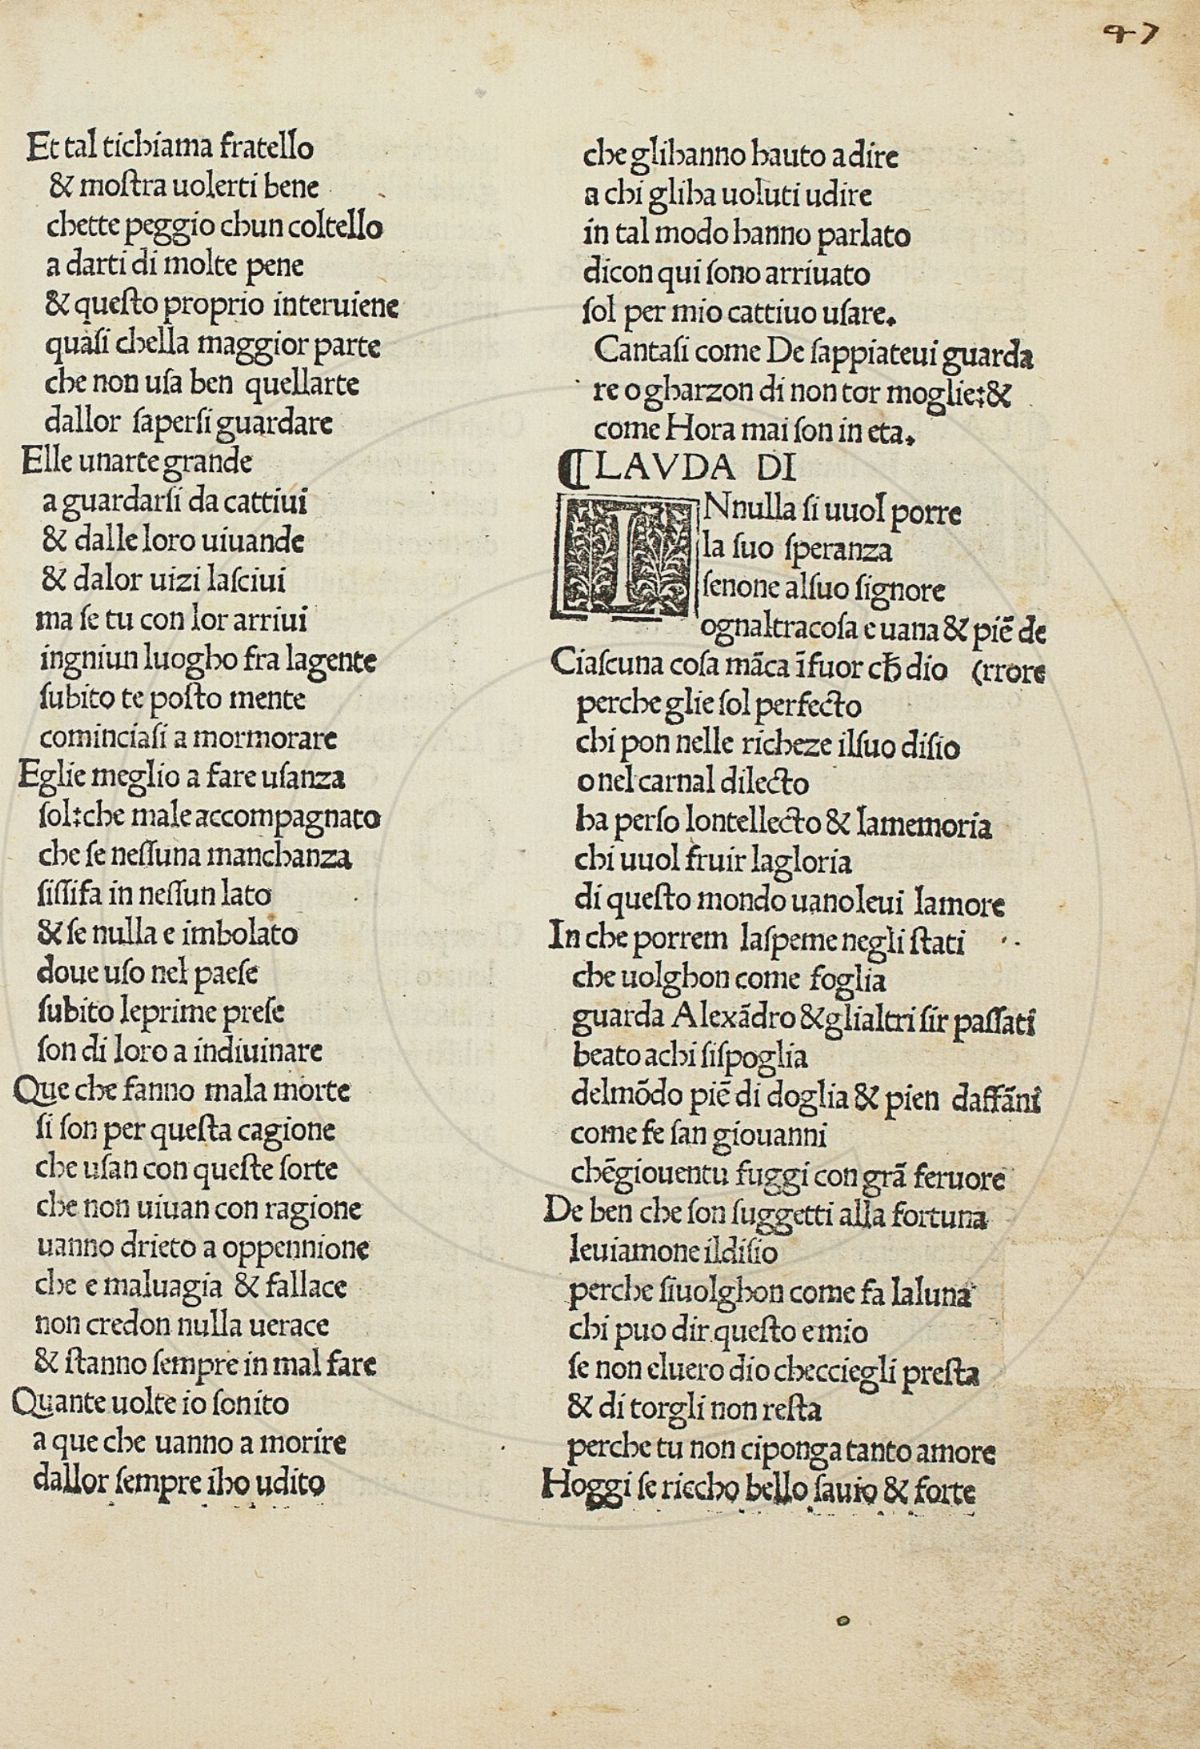 47
Et tal tichiama fratello
& moſtra uolerti bene
chette peggio chun coltello
a darti di molte pene
& queſto proprio interuiene
quaſi chella maggior parte
che non uſa ben quellarte
dallor ſaperſi guardare
Elle unarte grande
a guardarſi da cattiui
& dalle loro uiuande
& dalor uizi laſciui
ma ſe tu con lor arriui
ingniun luogho fra lagente
ſubito te poſto mente
cominciaſi a mormorare
Eglie meglio a fare uſanza
ſol:che male accompagnato
che ſe neſſuna manchanza
ſiſſifa in neſſun lato
& ſe nulla e imbolato
doue uſo nel paeſe
ſubito leprime preſe
ſon di loro a indiuinare
Que che fanno mala morte
ſi ſon per queſta cagione
che uſan con queſte ſorte
che non uiuan con ragione
uanno drieto a oppennione
che e maluagia & fallace
non credon nulla uerace
& ſtanno ſempre in mal fare
Quante uolte io ſonito
a que che uanno a morire
dallor ſempre iho udito
che glihanno hauto adire
a chi gliha uoluti udire
in tal modo hanno parlato
dicon qui ſono arriuato
ſol per mio cattiuo uſare.
Cantaſi come De ſappiateui guarda
re o gharzon di non tor moglie:&
come Hora mai ſon in eta.
¶LAVDA DI
INnulla ſi uuol porre
la ſuo ſperanza
ſenone alſuo ſignore
ognaltracoſa e uana & piē de
Ciaſcuna coſa māca īfuor cħ dio (rrore
perche glie ſol perfecto
chi pon nelle richeze ilſuo diſio
o nel carnal dilecto
ha perſo lontellecto & lamemoria
chi uuol fruir lagloria
di queſto mondo uanoleui lamore
In che porrem laſpeme negli ſtati
che uolghon come foglia
guarda Alexādro &glialtri ſir paſſati
beato achi ſiſpoglia
delmōdo piē di doglia & pien daffāni
come fe ſan giouanni
chēgiouentu fuggi con grā feruore
De ben che ſon ſuggetti alla fortuna
leuiamone ildiſio
perche ſiuolghon come fa laluna
chi puo dir queſto e mio
ſe non eluero dio checciegli preſta
& di torgli non reſta
perche tu non ciponga tanto amore
Hoggi ſe riccho bello ſauio & forte